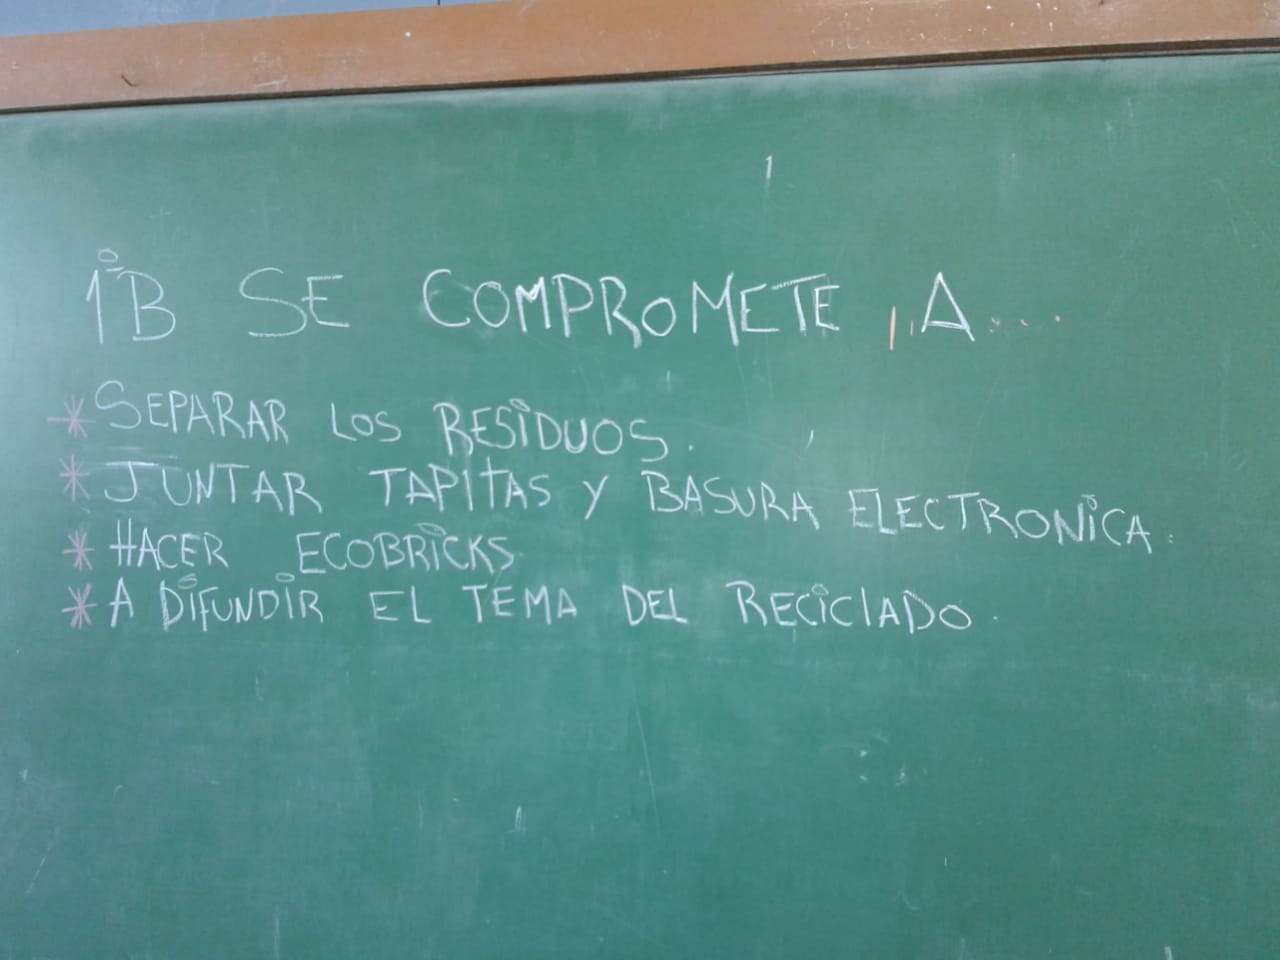 1ºB SE COMPROMETE A...
* SEPARAR LOS RESIDUOS.
* JUNTAR TAPITAS Y BASURA ELECTRONICA.
* HACER ECOBRICKS
* A DIFUNDIR EL TEMA DEL RECICLADO.